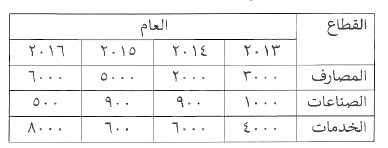 القطاع العام
٢٠١٣ ٢٠١٤ ٢٠١٥ ٢٠١٦
المصارف ٣٠٠٠ ٢٠٠٠ ٥٠٠٠ ٦٠٠٠
الصناعات ١٠٠٠ ٩٠٠ ٩٠٠ ٥٠٠
الخدمات ٤٠٠٠ ٦٠٠٠ ٦٠٠ ٨٠٠٠